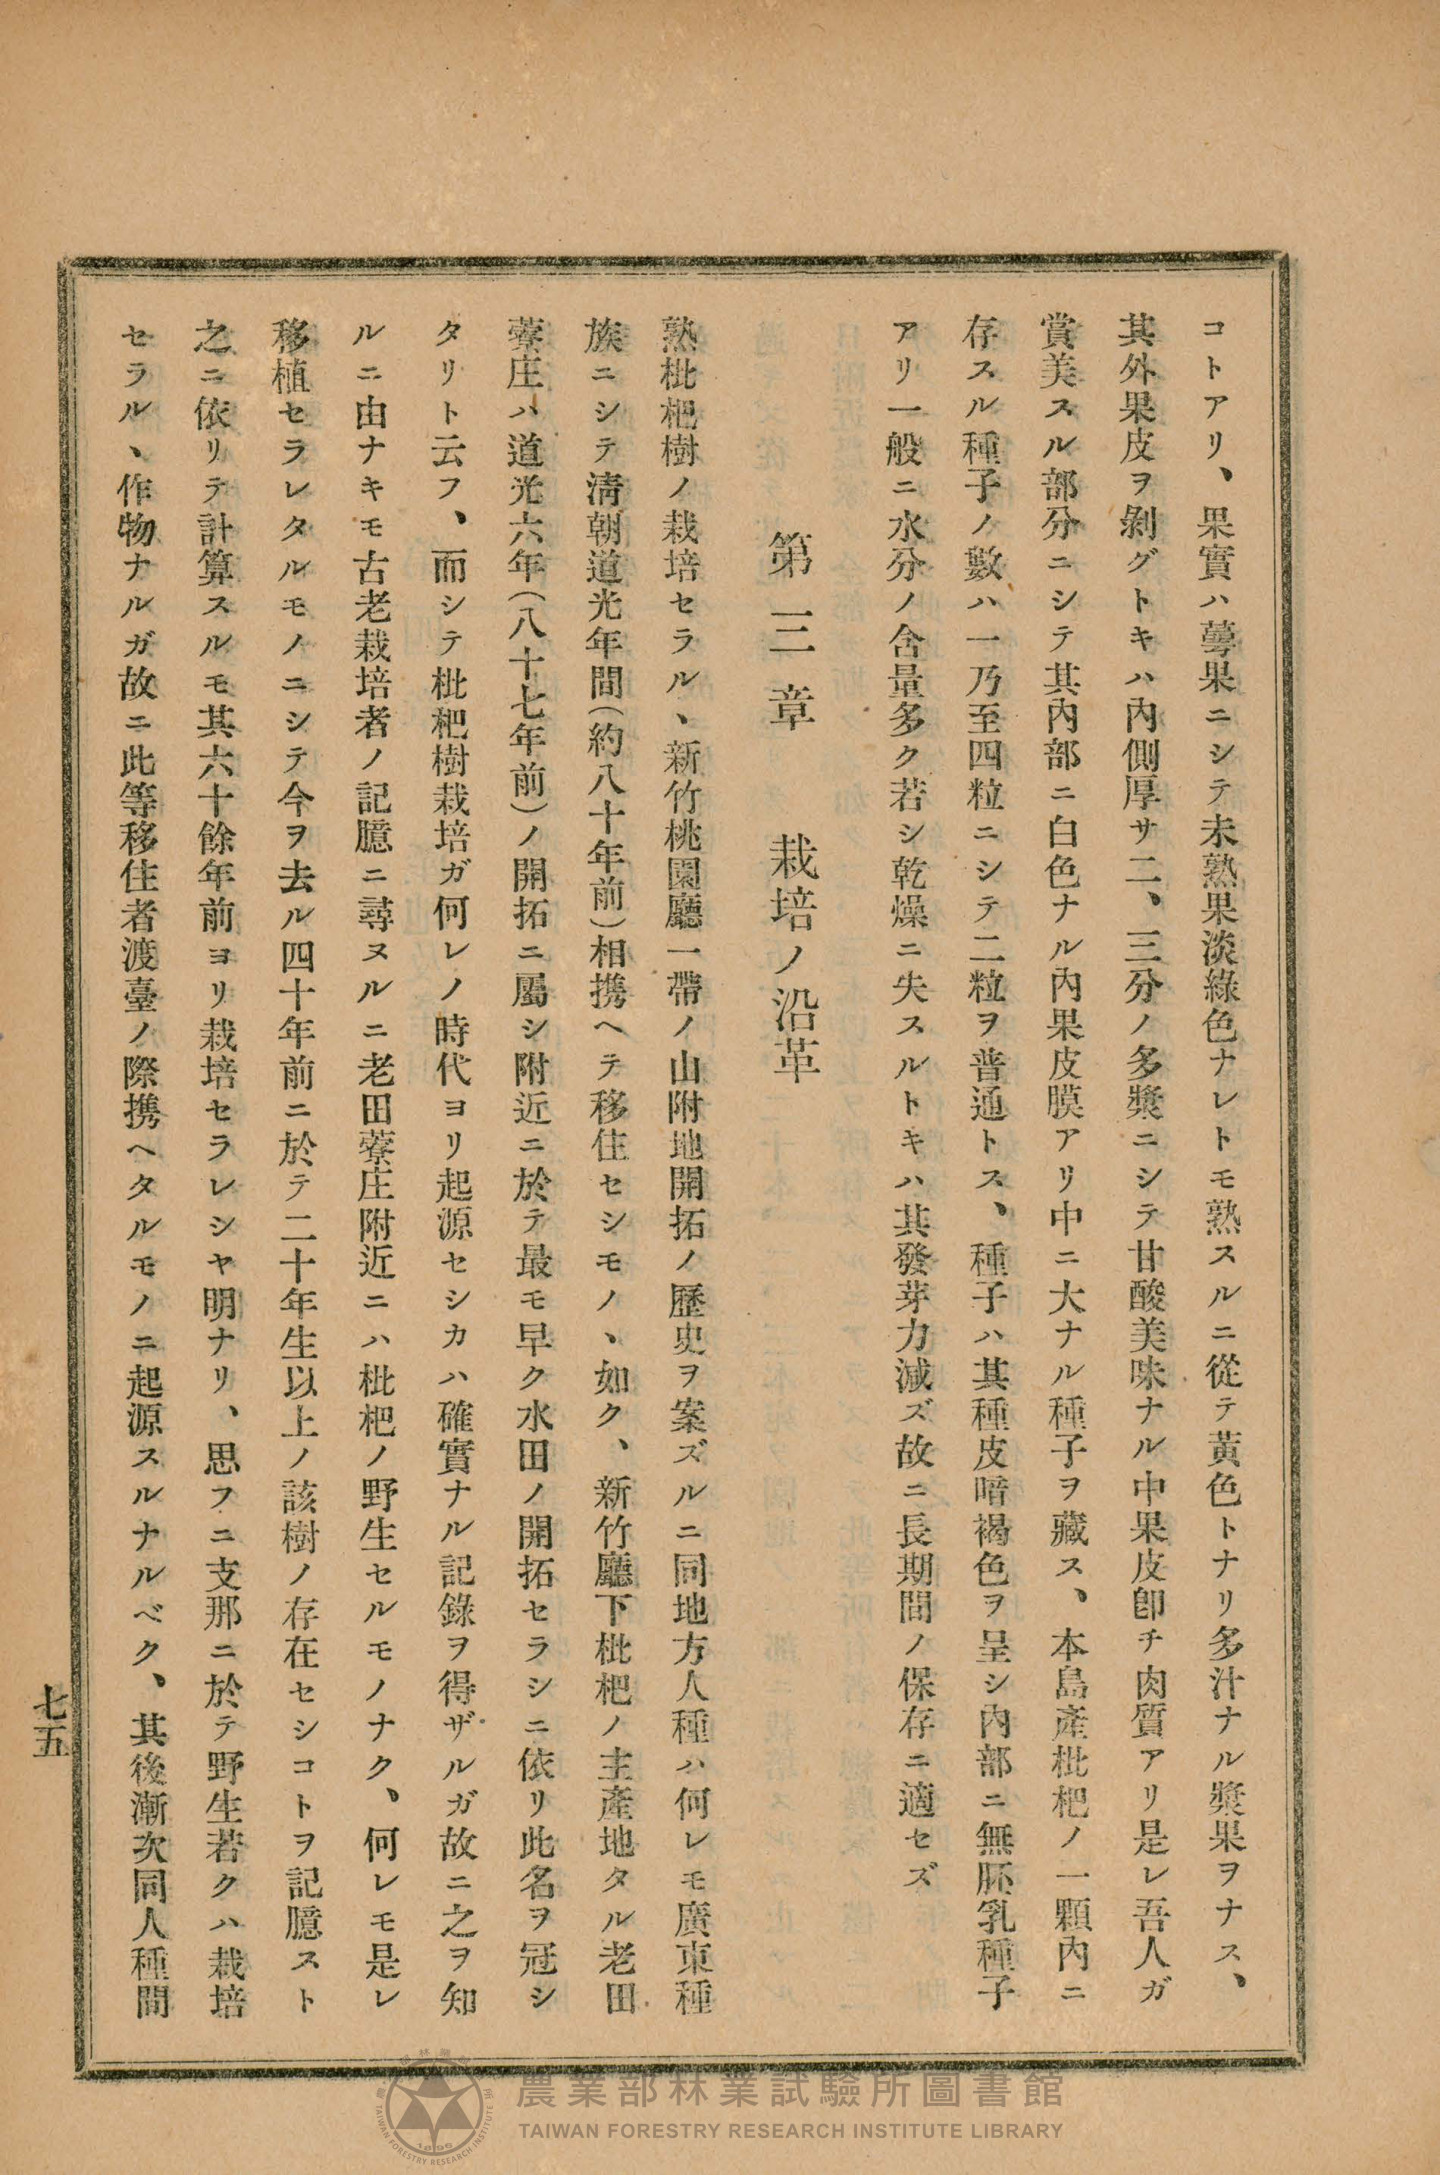 コトアリ、果實ハ蕚果ニシテ未熟果淡綠色ナレトモ熟スルニ從テ黃色トナリ多汁ナル漿果ヲナス、
其外果皮ヲ剝グトキハ內側厚サ二、三分ノ多漿ニシテ甘酸美味ナル中果皮卽チ肉質アリ是レ吾人ガ
賞美スル部分ニシテ其內部ニ白色ナル內果皮膜アリ中ニ大ナル種子ヲ藏ス、本島產枇杷ノ一顆內ニ
存スル種子ノ數ハ一乃至四粒ニシテ二粒ヲ普通トス、種子ハ其種皮暗褐色ヲ呈シ內部ニ無胚乳種子
アリ一般ニ水分ノ含量多ク若シ乾燥ニ失スルトキハ其發芽力減ズ故ニ長期間ノ保存ニ適セズ
第三章 栽培ノ沿革
熟枇杷樹ノ栽培セラル、新竹桃園廳一帶ノ山附地開拓ノ歷史ヲ案ズルニ同地方人種ハ何レモ廣東種
族ニシテ淸朝道光年間(約八十年前)相携ヘテ移住セシモノ、如ク、新竹廳下枇杷ノ主產地タル老田
藔庄ハ道光六年(八十七年前)ノ開拓ニ屬シ附近ニ於テ最モ早ク水田ノ開拓セラシニ依リ此名ヲ冠シ
タリト云フ、而シテ枇杷樹栽培ガ何レノ時代ヨリ起源セシカハ確實ナル記錄ヲ得ザルガ故ニ之ヲ知
ルニ由ナキモ古老栽培者ノ記臆ニ尋ヌルニ老田藔庄附近ニハ枇杷ノ野生セルモノナク、何レモ是レ
移植セラレタルモノニシテ今ヲ去ル四十年前ニ於テ二十年生以上ノ該樹ノ存在セシコトヲ記臆スト
之ニ依リテ計算スルモ其六十餘年前ヨリ栽培セラレシヤ明ナリ、思フニ支那ニ於テ野生若クハ栽培
セラル、作物ナルガ故ニ此等移住者渡臺ノ際携ヘタルモノニ起源スルナルベク、其後漸次同人種間
七五
農業部林業試驗所圖書館
TAIWAN FORESTRY RESEARCH INSTITUTE LIBRARY